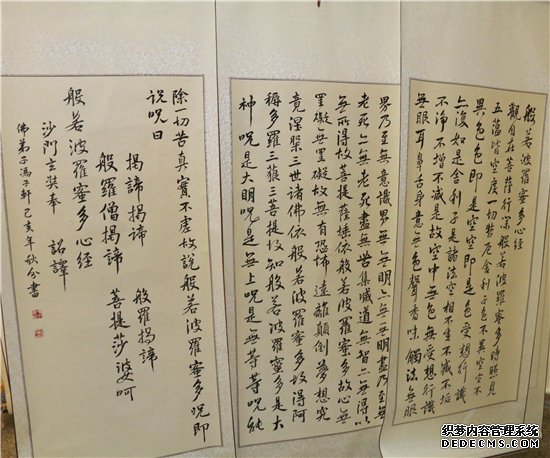 般若波羅蜜多心經
觀自在菩薩行深般若波羅蜜多時照見
五蘊皆空度一切苦厄舍利子色不異空空不
異色色即是空空即是色受想行識
亦復如是舍利子是諸法空相不生不滅不垢
不淨不增不減是故空中無色無受想行識
無眼耳鼻舌身意無色聲香味觸法無眼
界乃至無意識界無無明亦無無明盡乃至無
老死亦無老死盡無苦集滅道無智亦無得以
無所得故菩提薩埵依般若波羅蜜多故心無
罣礙無罣礙故無有恐怖遠離顛倒夢想究
竟涅槃三世諸佛依般若波羅蜜多故得阿
耨多羅三藐三菩提故知般若波羅蜜多是大
神呪是大明呪是無上呪是無等等呪能
除一切苦真實不虛故說般若波羅蜜多呪即
說呪曰
揭諦揭諦 般羅揭諦
般羅僧揭諦 菩提莎婆呵
般若波羅蜜多心經
沙門玄奘奉 詔譯
佛弟子馮子軒己亥年秋分書
织梦内容管理系统
DEDECMS.COM